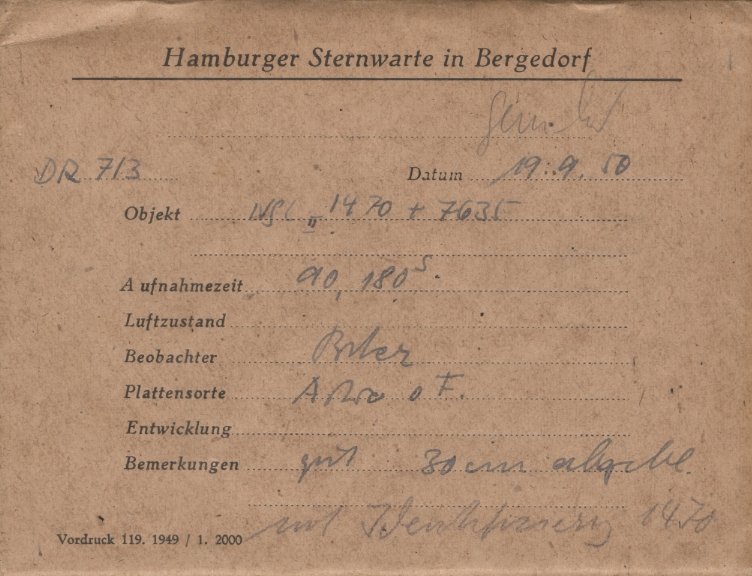 Hamburger Sternwarte in Bergedorf
DR 713 Datum 19.9.50
Objekt NGC 1470 + 7635
Aufnahmezeit 90, 180s
Luftzustand
Beobachter
Plattensorte Astro o F.
Entwicklung
Bemerkungen gut 30cm abgebl.
mit Identifizierung 1470
Vordruck 119. 1949 / 1. 2000